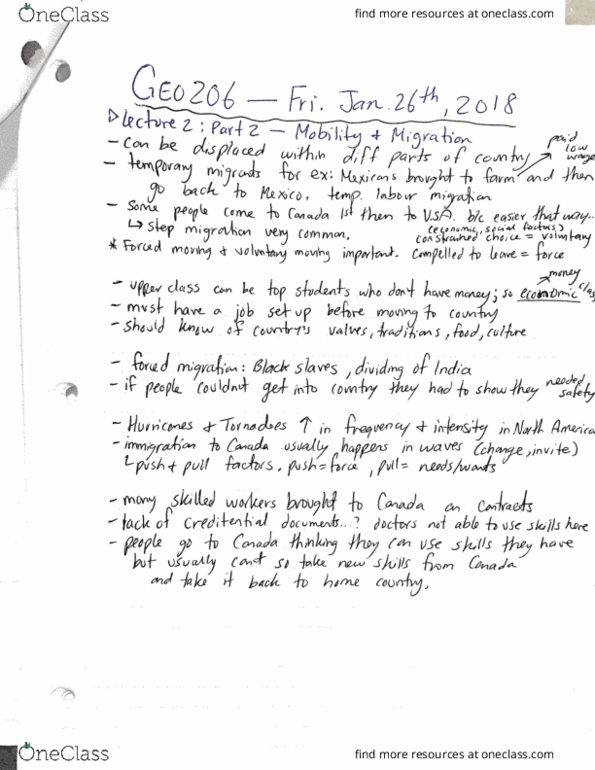 OneClass
find more resources at oneclass.com
GEO206 — Fri. Jan. 26th, 2018
▷ Lecture 2: Part 2 — Mobility & Migration
- can be displaced within diff parts of country
paid low wage
- temporary migrads for ex: Mexicans brought to farm and then
go back to Mexico. temp. labour migration
- Some people come to Canada 1st then to U.S.A. b/c easier that way..
↳ step migration very common.
(economic, social factors)
constrained choice = voluntary
* Forced moving & voluntary moving important. Compelled to leave = force
money
- upper class can be top students who don't have money; so economic class
- must have a job set up before moving to country
- should know of country's values, traditions, food, culture
- forced migration: Black slaves, dividing of India
- if people couldnt get into country they had to show they needed safety
- Hurricones & Tornadoes ↑ in frequency & intensity in North America
- immigration to Canada usually happens in waves (change, invite)
↳ push & pull factors, push = force, pull = needs/wants
- many skilled workers brought to Canada on contracts
- lack of creditential documents...? doctors not able to use skills here
- people go to Canada thinking they can use skills they have
but usually cant so take new skills from Canada
and take it back to home country.
OneClass
find more resources at oneclass.com